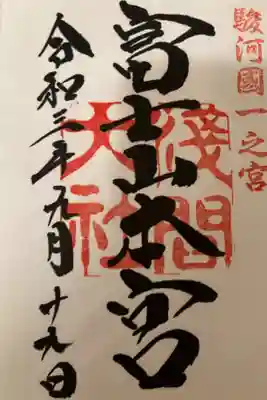 駿河國一之宮
富士山本宮
淺間
大社
令和三年九月十九日